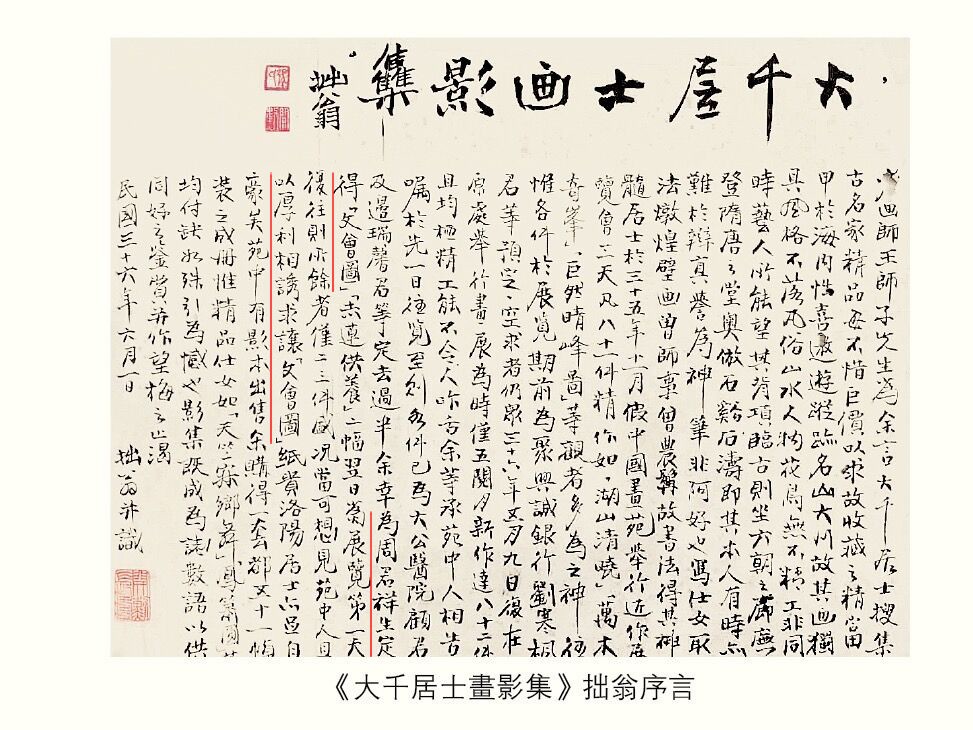 大千居士画影集
拙翁
画師王師子先生為余言大千居士搜集
古名家精品毎不惜巨價以求故收藏之精當
甲於海内性喜遨遊蹤跡名山大川故其画獨
具風格不落凡俗山水人物花鳥無不精工非同
時藝人所能望其背項臨古則坐六朝之廡
登隋唐之堂奥倣石谿石濤即其本人有時亦
難於辯真譽為神筆非阿好也寫仕女取
法燉煌壁画曽師事曾農髯故書法得其神
髓居士於三十五年十一月假中國畫苑舉行近作展
覽會三天凡八十一件精作如「湖山清曉」「萬木
奇峯」「巨然晴峰圖」等觀者多為之神往
惟各件於展覽期前為聚興誠銀行劉寒楓
君等預定空求者仍眾三十六年五月九日復在
原處舉行畫展為時僅五閱月新作達八十二件
且均極精工能不令人咋舌余等承苑中人相告
囑於先一日往覽至則各件已為大公醫院顧君
及邊瑞馨君等定去過半余幸為周君祥生定
得「文會圖」「赤蓮供養」二幅翌日為展覽第一天
復往則所餘者僅二三件盛况當可想見苑中人且
以厚利相誘求讓「文會圖」紙貴洛陽居士亦足自
豪矣苑中有影本出售余購得一套都五十一幀
裝之成冊惟精品仕女如「天竺舞」「鄉舞」「鳳簫圖
均付缺如殊引為憾也影集既成為誌數語以供
同好之鑒賞并作望梅之止渴
民國三十六年六月一日
拙翁并識
《大千居士畫影集》拙翁序言